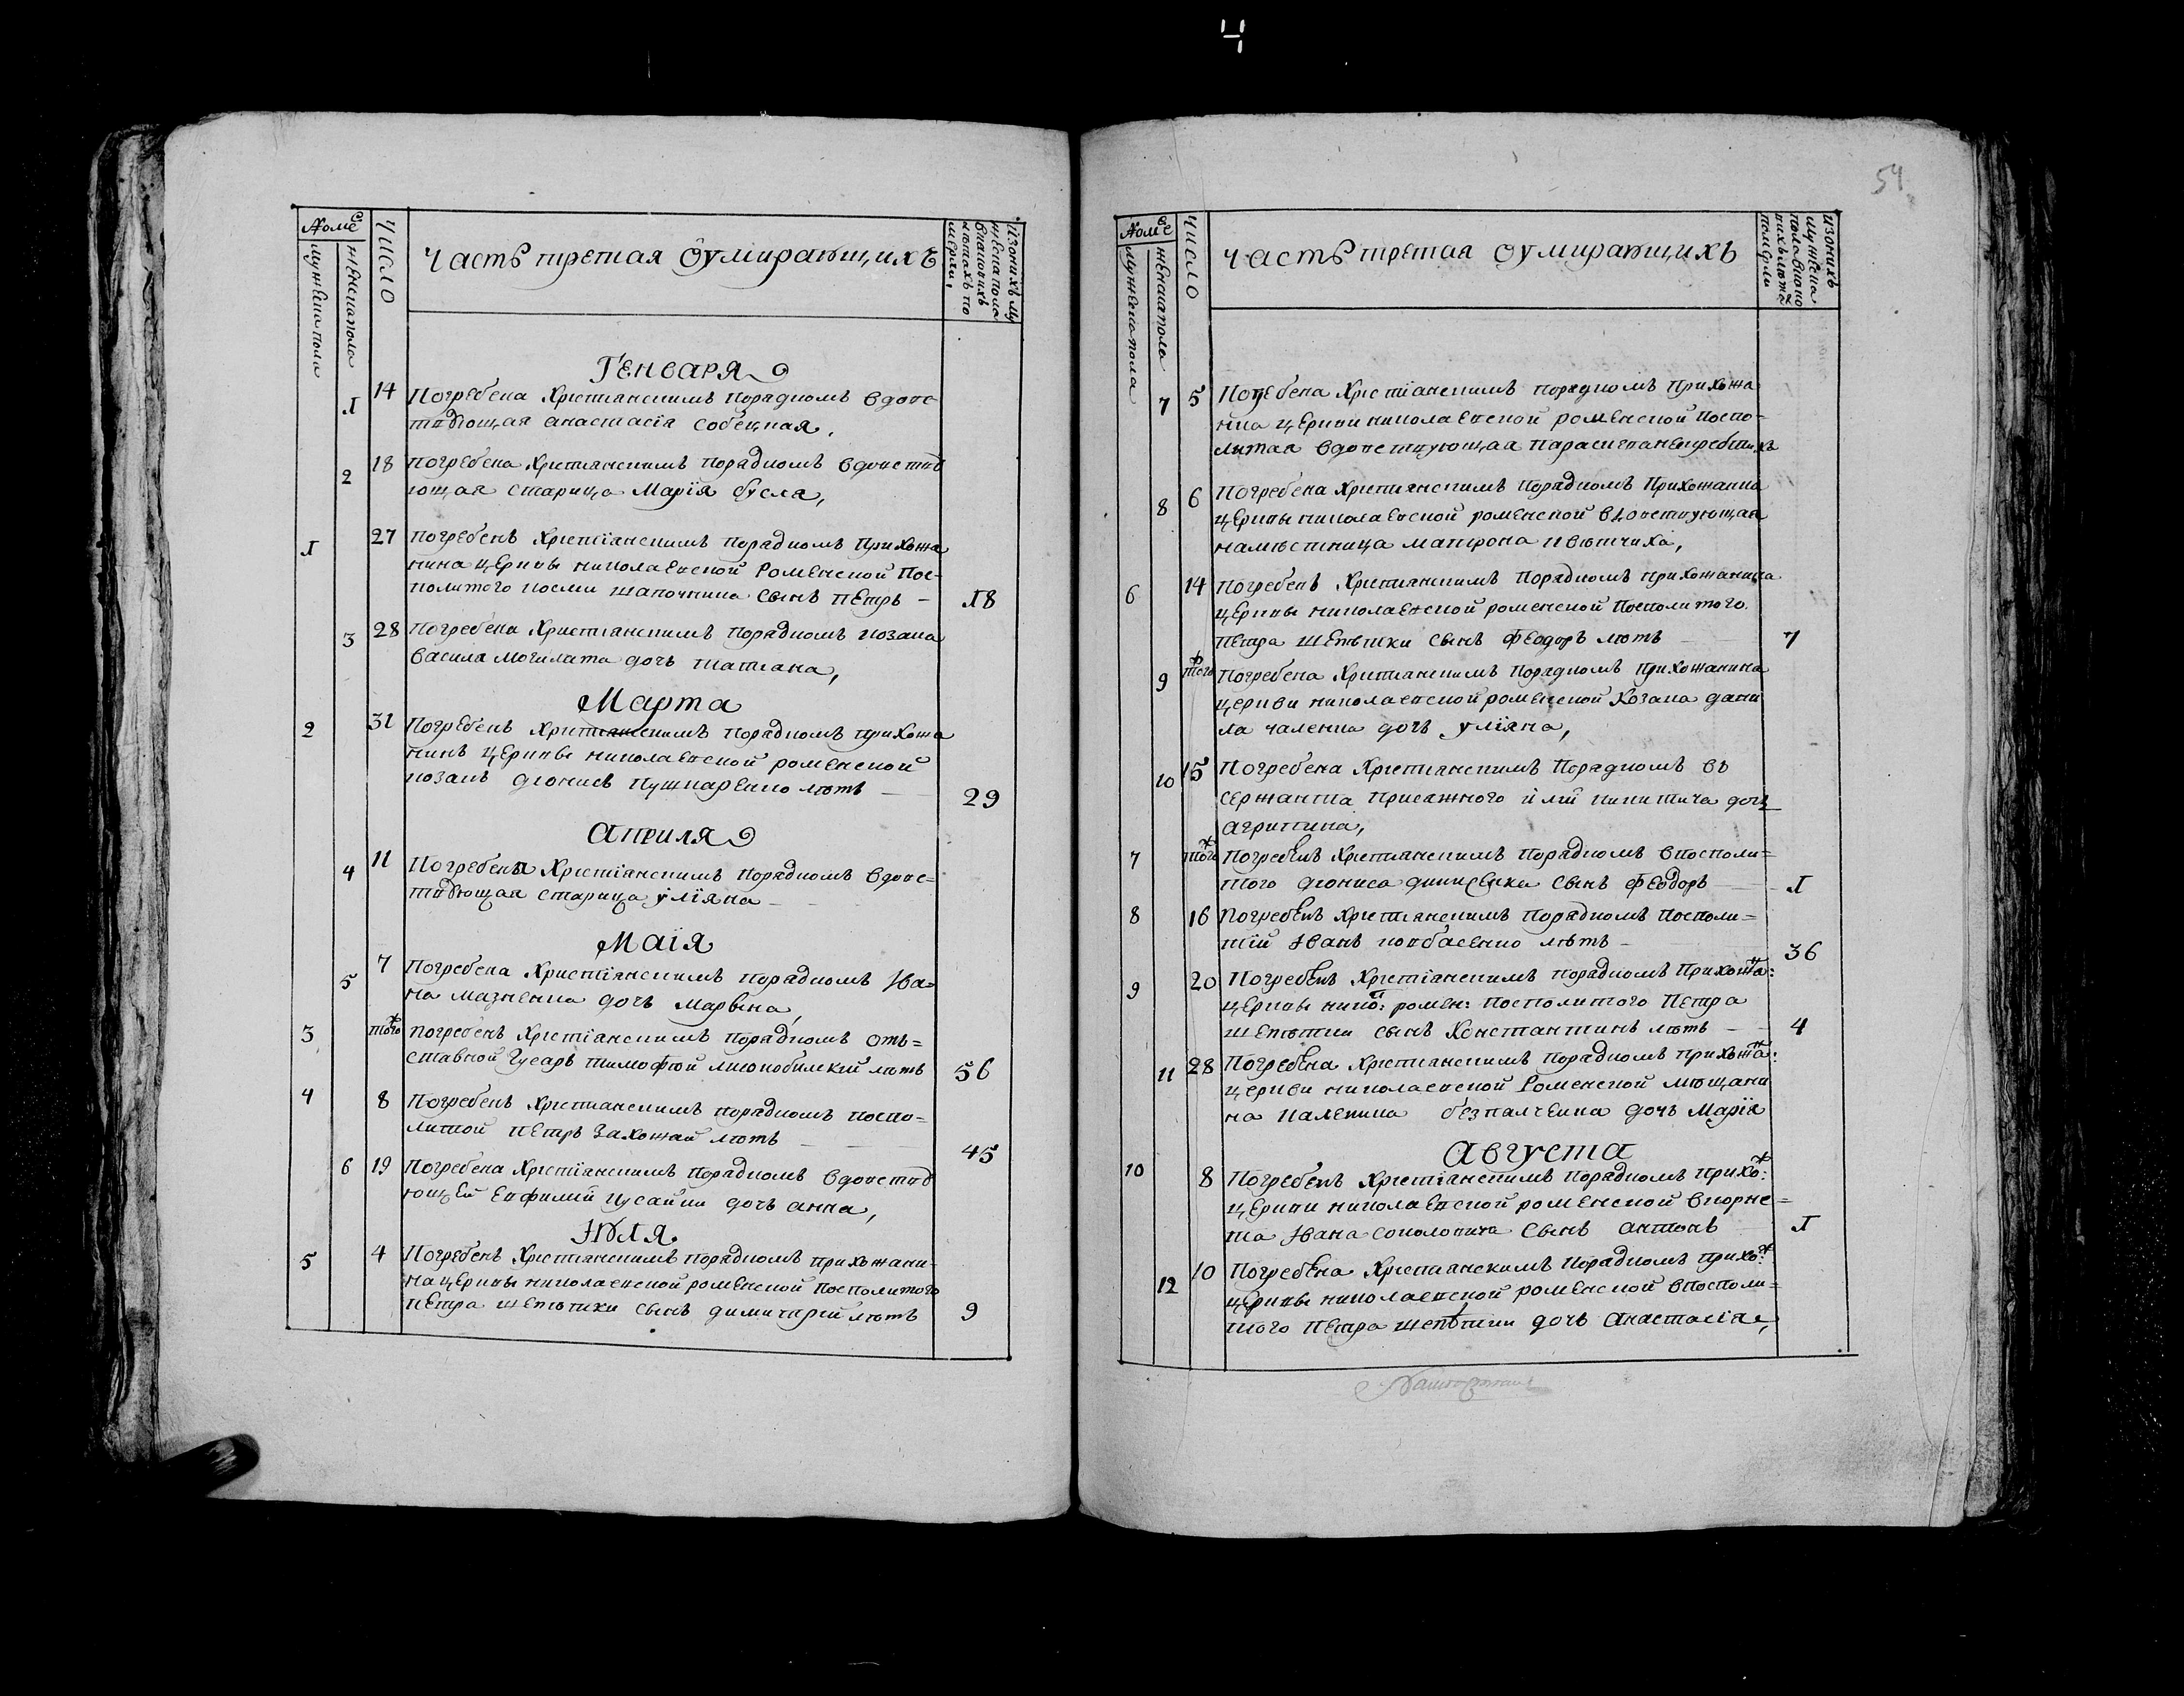 Ч
Ном҃е
мужеска пола
женска пола
число
часть третая оумирающихъ
Изонихъ му
жеска пола
вкакихъ
летахъ по
мерли,
Генваря
1 14 Погребена Хрістіанскимъ порадкомъ вдовс-
твующая анастасія собецкая,
2 18 погребена Хрістианскимъ порадкомъ вдовству
ющая старица Марія бусла,
1 27 погребенъ Хрістіанскимъ порадкомъ прихожа
нина церквы николаевской Роменской Пос-
политого
шапочника сынъ петръ – 18
3 28 Погребена Християнскимъ порадкомъ козака
василя могилата дочъ татиана,
Марта
2 31 Погребенъ Християнскимъ порадкомъ прихожа
нинъ церквы николаевской роменской
козакъ діонисъ пушкаренко летъ – 29
Априля
4 11 Погребена Хрістіанскимъ порадкомъ вдовс-
твующая старица уліяна –
Маія
5 7 Погребена Християнскимъ порадкомъ Ива-
на мазненка дочъ марѳна,
3 того ж погребенъ Хрістіанскимъ порадкомъ отъ-
ставной гусаръ тимофей летъ 56
4 8 Погребенъ Хрістианскимъ порадкомъ поспо-
литой петръ Захожай летъ – 45
6 19 Погребена Хрістіанскимъ порадкомъ вдовству
ющей евфимии дочъ анна,
Июля
5 4 Погребенъ Хрістианскимъ порадкомъ прихожани-
на церквы николаевской роменской Посполитого
петра шепетки сынъ димитарій летъ 9
54
Ном҃е
мужеска пола
женска пола
число
часть третая оумирающихъ
изонихъ
мужеска
пола вкако
вихъ летахъ
померли
7 5 Погребена Хрістіанскимъ порадкомъ прихожа
нка церкви николаевской роменской Поспо-
литая вдовствующая
8 6 Погребена Хрістианскимъ порадкомъ Прихожанка
церквы николаевской роменской вдовствующая
наместница матрона ивѣтчиха,
6 14 Погребенъ Хрістианскимъ Порадкомъ прихожанина
церквы николаевской роменской Посполитого
петра шепетки сынъ феодоръ летъ – 7
9 того ж Погребена Християнскимъ порадкомъ прихожанина
церкви николаевской роменской Козака дани
ла чаленка дочъ уліяна,
10 15 Погребена Хрістианскимъ Порадкомъ въ
сержанта присажного иліи никитича дочъ
агрипина,
7 того ж погребенъ Хрістианскимъ порадкомъ впосполи-
того дионисa динисенка сынъ феодоръ – 1
8 16 погребенъ Хрістианскимъ порадкомъ посполи-
тій Иванъ ковбасенко летъ – 36
9 20 Погребенъ Хрістіанскимъ порадкомъ прихожа:
церквы нико: ромен: посполитого Петра
шепетки сынъ Константинъ летъ – 4
11 28 Погребена Хрістианскимъ порадкомъ прихожа:
церкви николаевской Роменской мещани
на безпалченка дочъ Марія
Августа
10 8 Погребенъ Хрістіанскимъ порадкомъ прихо:
церкви николаевской роменской вкорне-
та Ивана соколовича сынъ антонъ 1
12 10 Погребена Хрістианскимъ порадкомъ прихо:
церквы николаевской роменской впосполи-
того петра шепетки дочъ Анастасія,